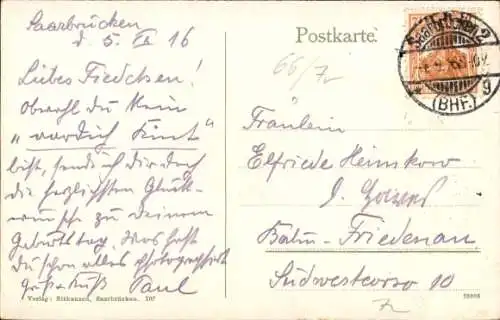 Saarbrücken
d. 5. IX 16
Liebes Fiedchen!
Obwohl du kein
" Kind"
bist, send ich dir doch
die herzlichsten Glück-
wünsche zu deinem
Geburtstag. Was hast
du schon alles photographiert
Gruß + Kuß Paul
Verlag: Rithausen, Saarbrücken. 107
Postkarte.
66/7
Saarbrücken 2
(BHF.)
g
Fräulein
Elfriede Heinskow
Friedenau
Südwestcorso 10